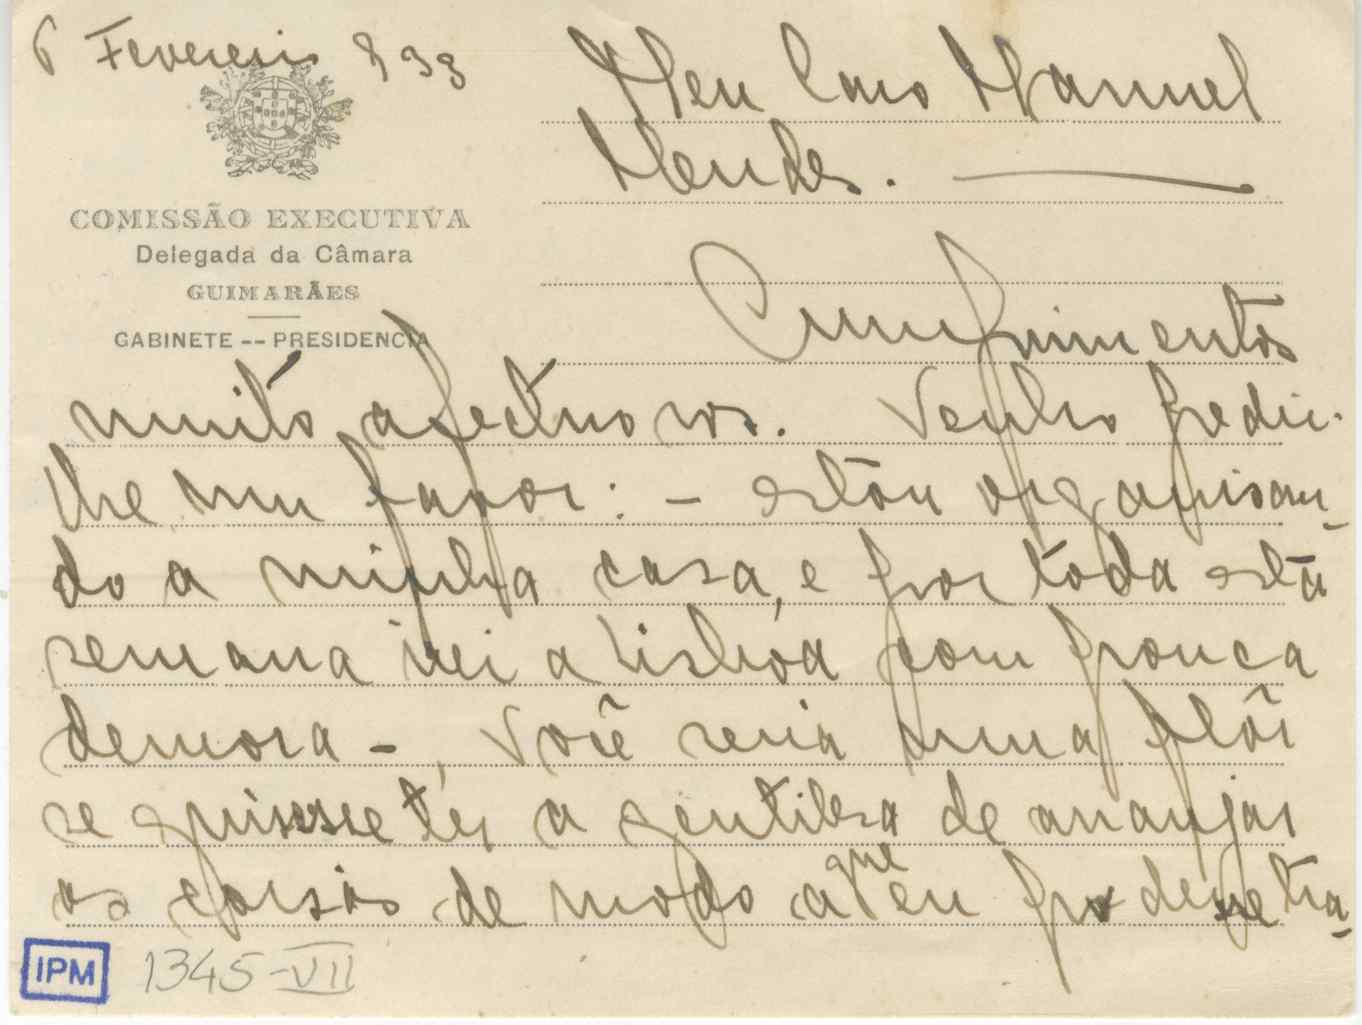 6 Fevereiro 933
Meu Caro Manuel
Mendes.
COMISSÃO EXECUTIVA
Delegada da Câmara
GUIMARÃES
GABINETE -- PRESIDENCIA
Cumprimentos
muito afectuosos. Venho pedir-
lhe um favor: - estou organisan-
do a minha casa, e por toda esta
semana irei a Lisbôa com pouca
demora -, Você seria uma flôr
se quisesse ter a gentilesa de arranjar
as coisas de modo a que eu podesse tra-
IPM 1345-VII